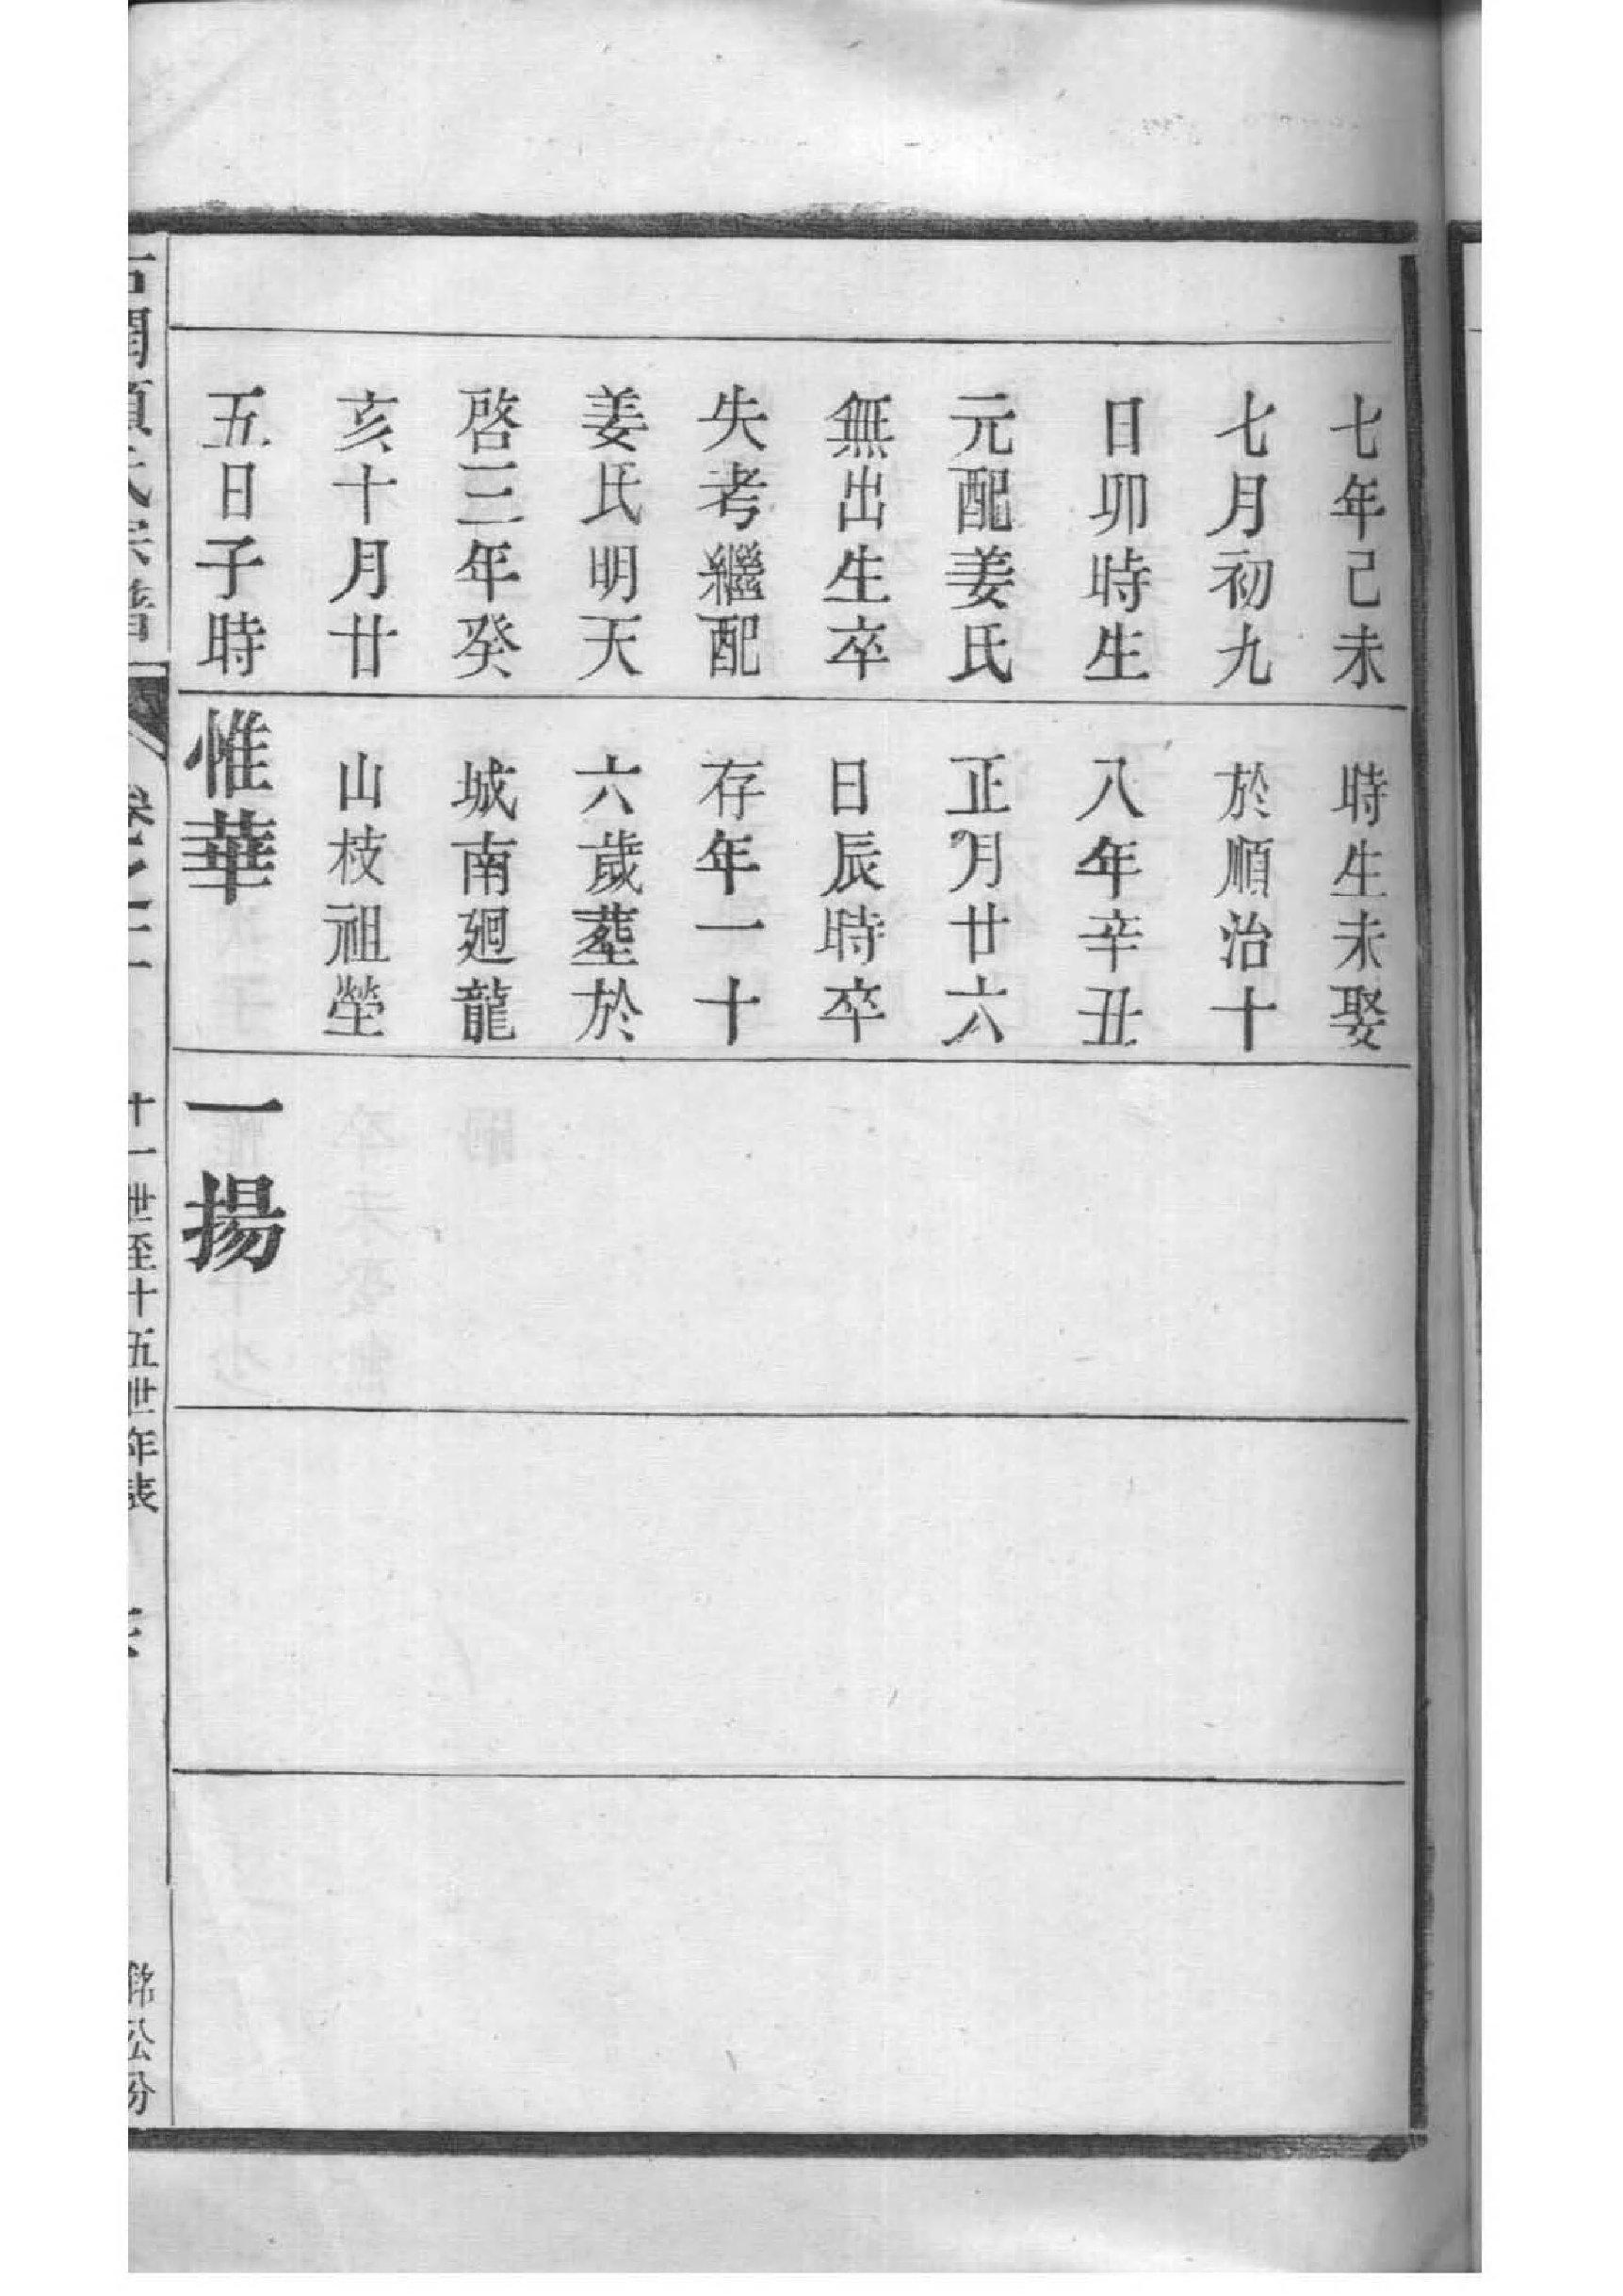 七年己未
七月初九
日卯時生
元配姜氏
無出生卒
失考繼配
姜氏明天
啓三年癸
亥十月廿
五日子時
時生未娶
於順治十
八年辛丑
正月廿六
日辰時卒
存年一十
六歲塟於
城南廻龍
山枝祖塋
惟華
一揚
氏宗譜
卷之
十一世至十五世年表
公分